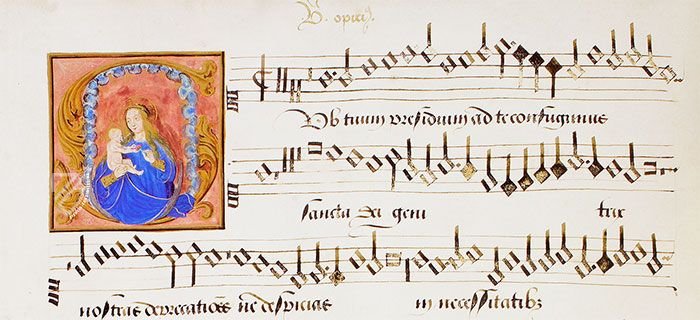 B. opitijs.
Ub tuum presidium ad te confugimus
sancta dei geni trix
nostras deprecationes ne despicias in necessitatibꝫ